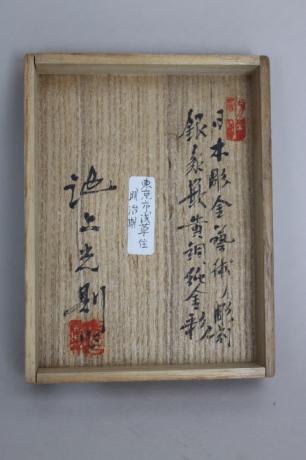 日本彫金藝術ノ彫刻
銀象嵌黄銅純金彩
東京市浅草住
明治期
池上光則